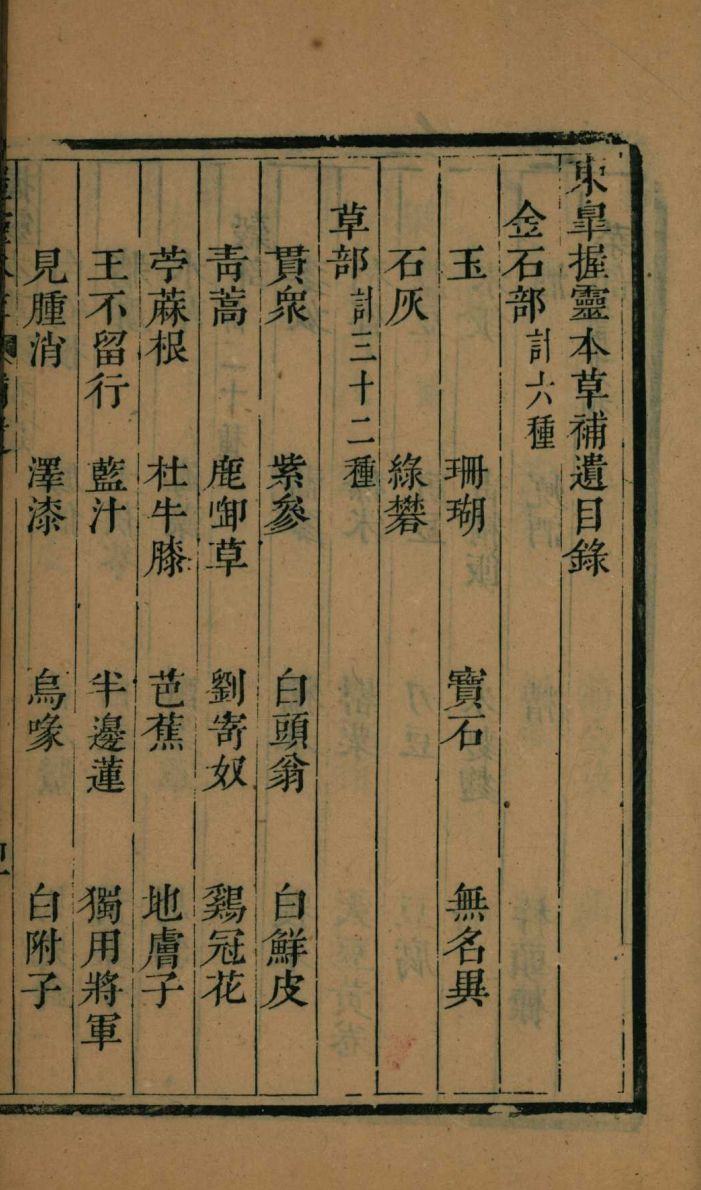 東皐握靈本草補遺目錄
金石部計六種
玉 珊瑚 寶石 無名異
石灰 綠礬
草部計三十二種
貫衆 紫參 白頭翁 白鮮皮
青蒿 鹿啣草 劉寄奴 鷄冠花
苧蔴根 杜牛膝 芭蕉 地膚子
王不留行 藍汁 半邊蓮 獨用將軍
見腫消 澤漆 烏喙 白附子